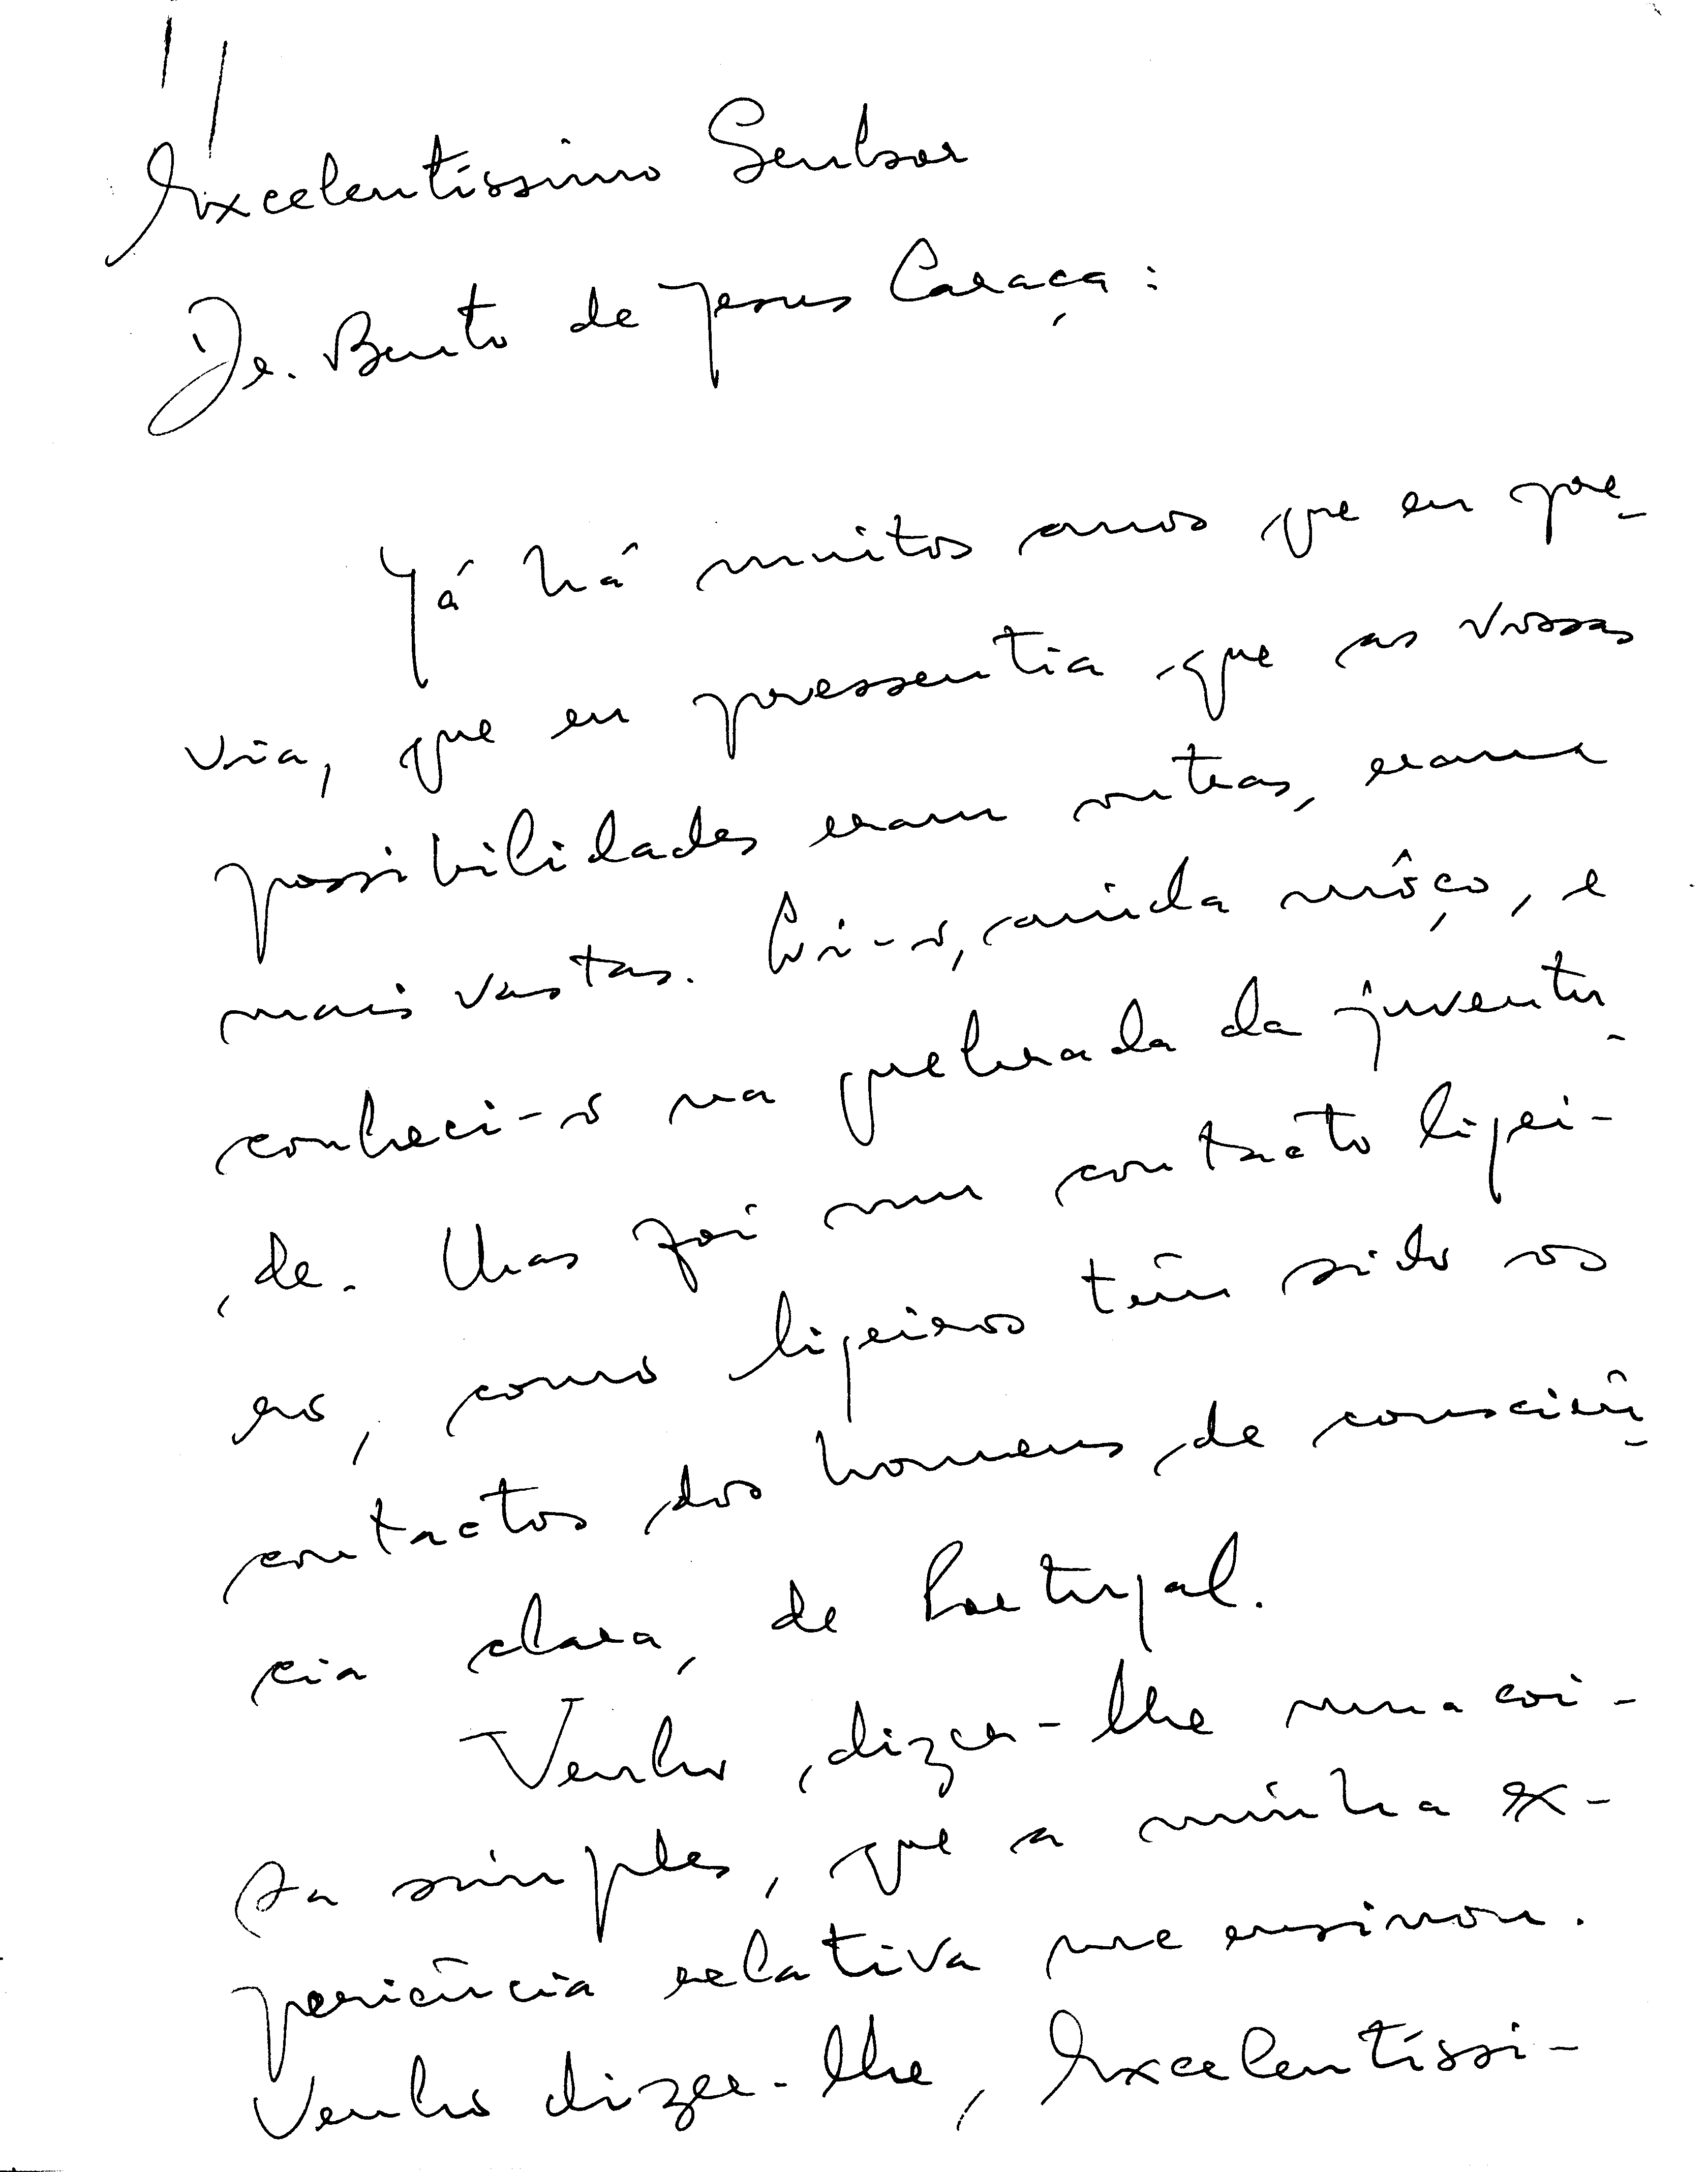 Excelentíssimo Senhor
Dr. Bento de Jesus Caraça:
Já há muitos anos que eu pre-
via, que eu pressentia que as vossas
possibilidades eram outras, eram
mais vastas. Vi-o, ainda môço, e
conheci-o na quebrada da juventu-
de. Mas foi um contacto ligei-
ro, como ligeiros têm sido os
contactos dos homens de consciên-
cia clara, de Portugal.
Venho dizer-lhe uma coi-
sa simples, que a minha ex-
periência relativa me ensinou.
Venho dizer-lhe, Excelentíssi-